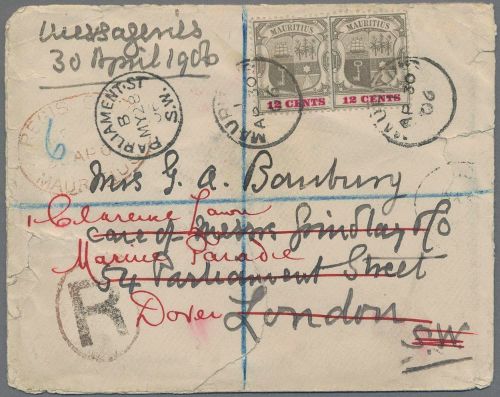 Messageries
30 April 1906
MAURITIUS
12 CENTS
MAURITIUS
12 CENTS
PARLIAMENT ST
S.W.
MY 28
MAURITIUS
AP 30
06
AP 30
06
REGIS
6
MAURITIUS
Mrs G. A. Banbury
1 Clarence Lawn
care of Messrs Grindlay & Co
Marine Parade
54 Parliament Street
R
Dover London
S.W